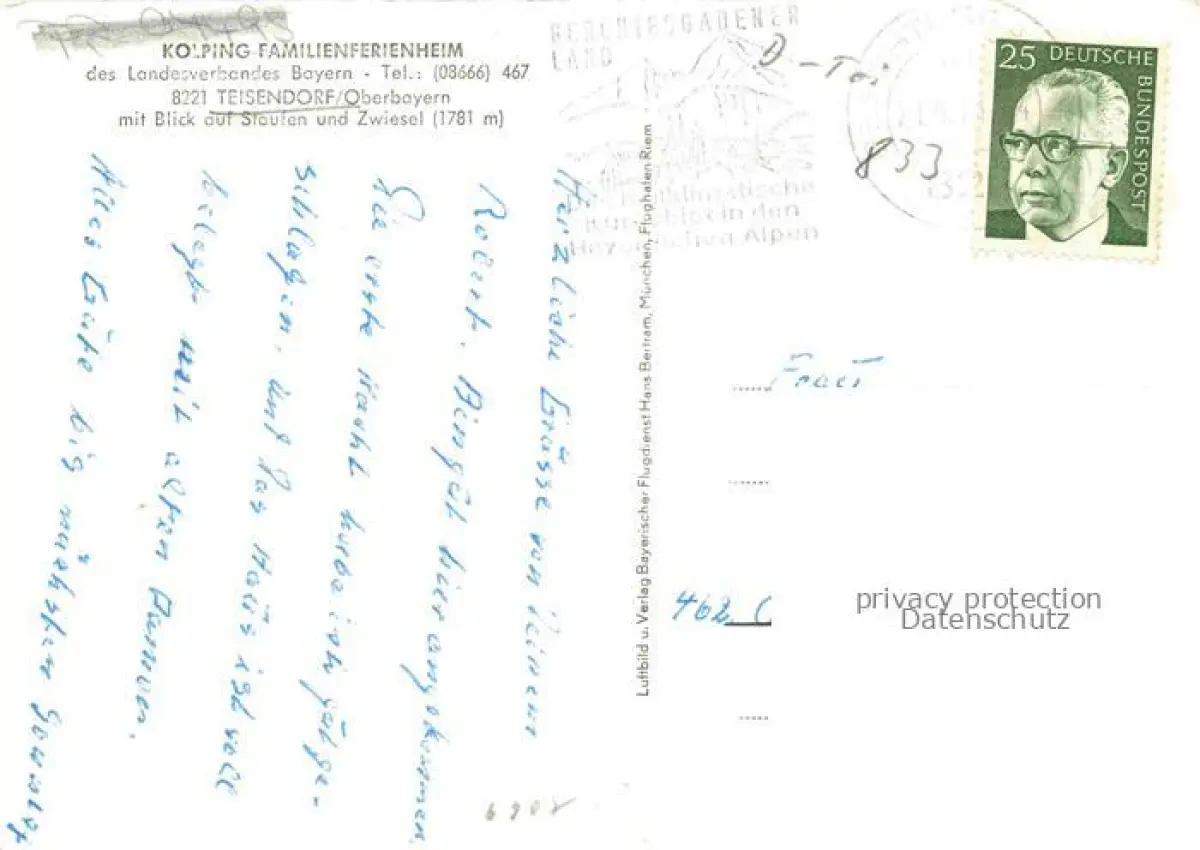 KOLPING-FAMILIENFERIENHEIM
des Landesverbandes Bayern - Tel.: (08666) 467
8221 TEISENDORF/Oberbayern
mit Blick auf Staufen und Zwiesel (1781 m)
Herzliche Grüsse von Deinem
Robert. Bin gut hier angekommen.
Die erste Nacht habe ich gut ge-
schlafen. Und das Haus ist voll
belegt mit alten
Alles Gute bis nächsten Sonntag
Luftbild u. Verlag Bayerischer Flugdienst Hans Bertram, München, Flughafen Riem
BERCHTESGADENER
LAND
Das heilklimatische
in den
Bayerischen Alpen
D - Tei
833
25 DEUTSCHE BUNDESPOST
Frau
462
privacy protection
Datenschutz